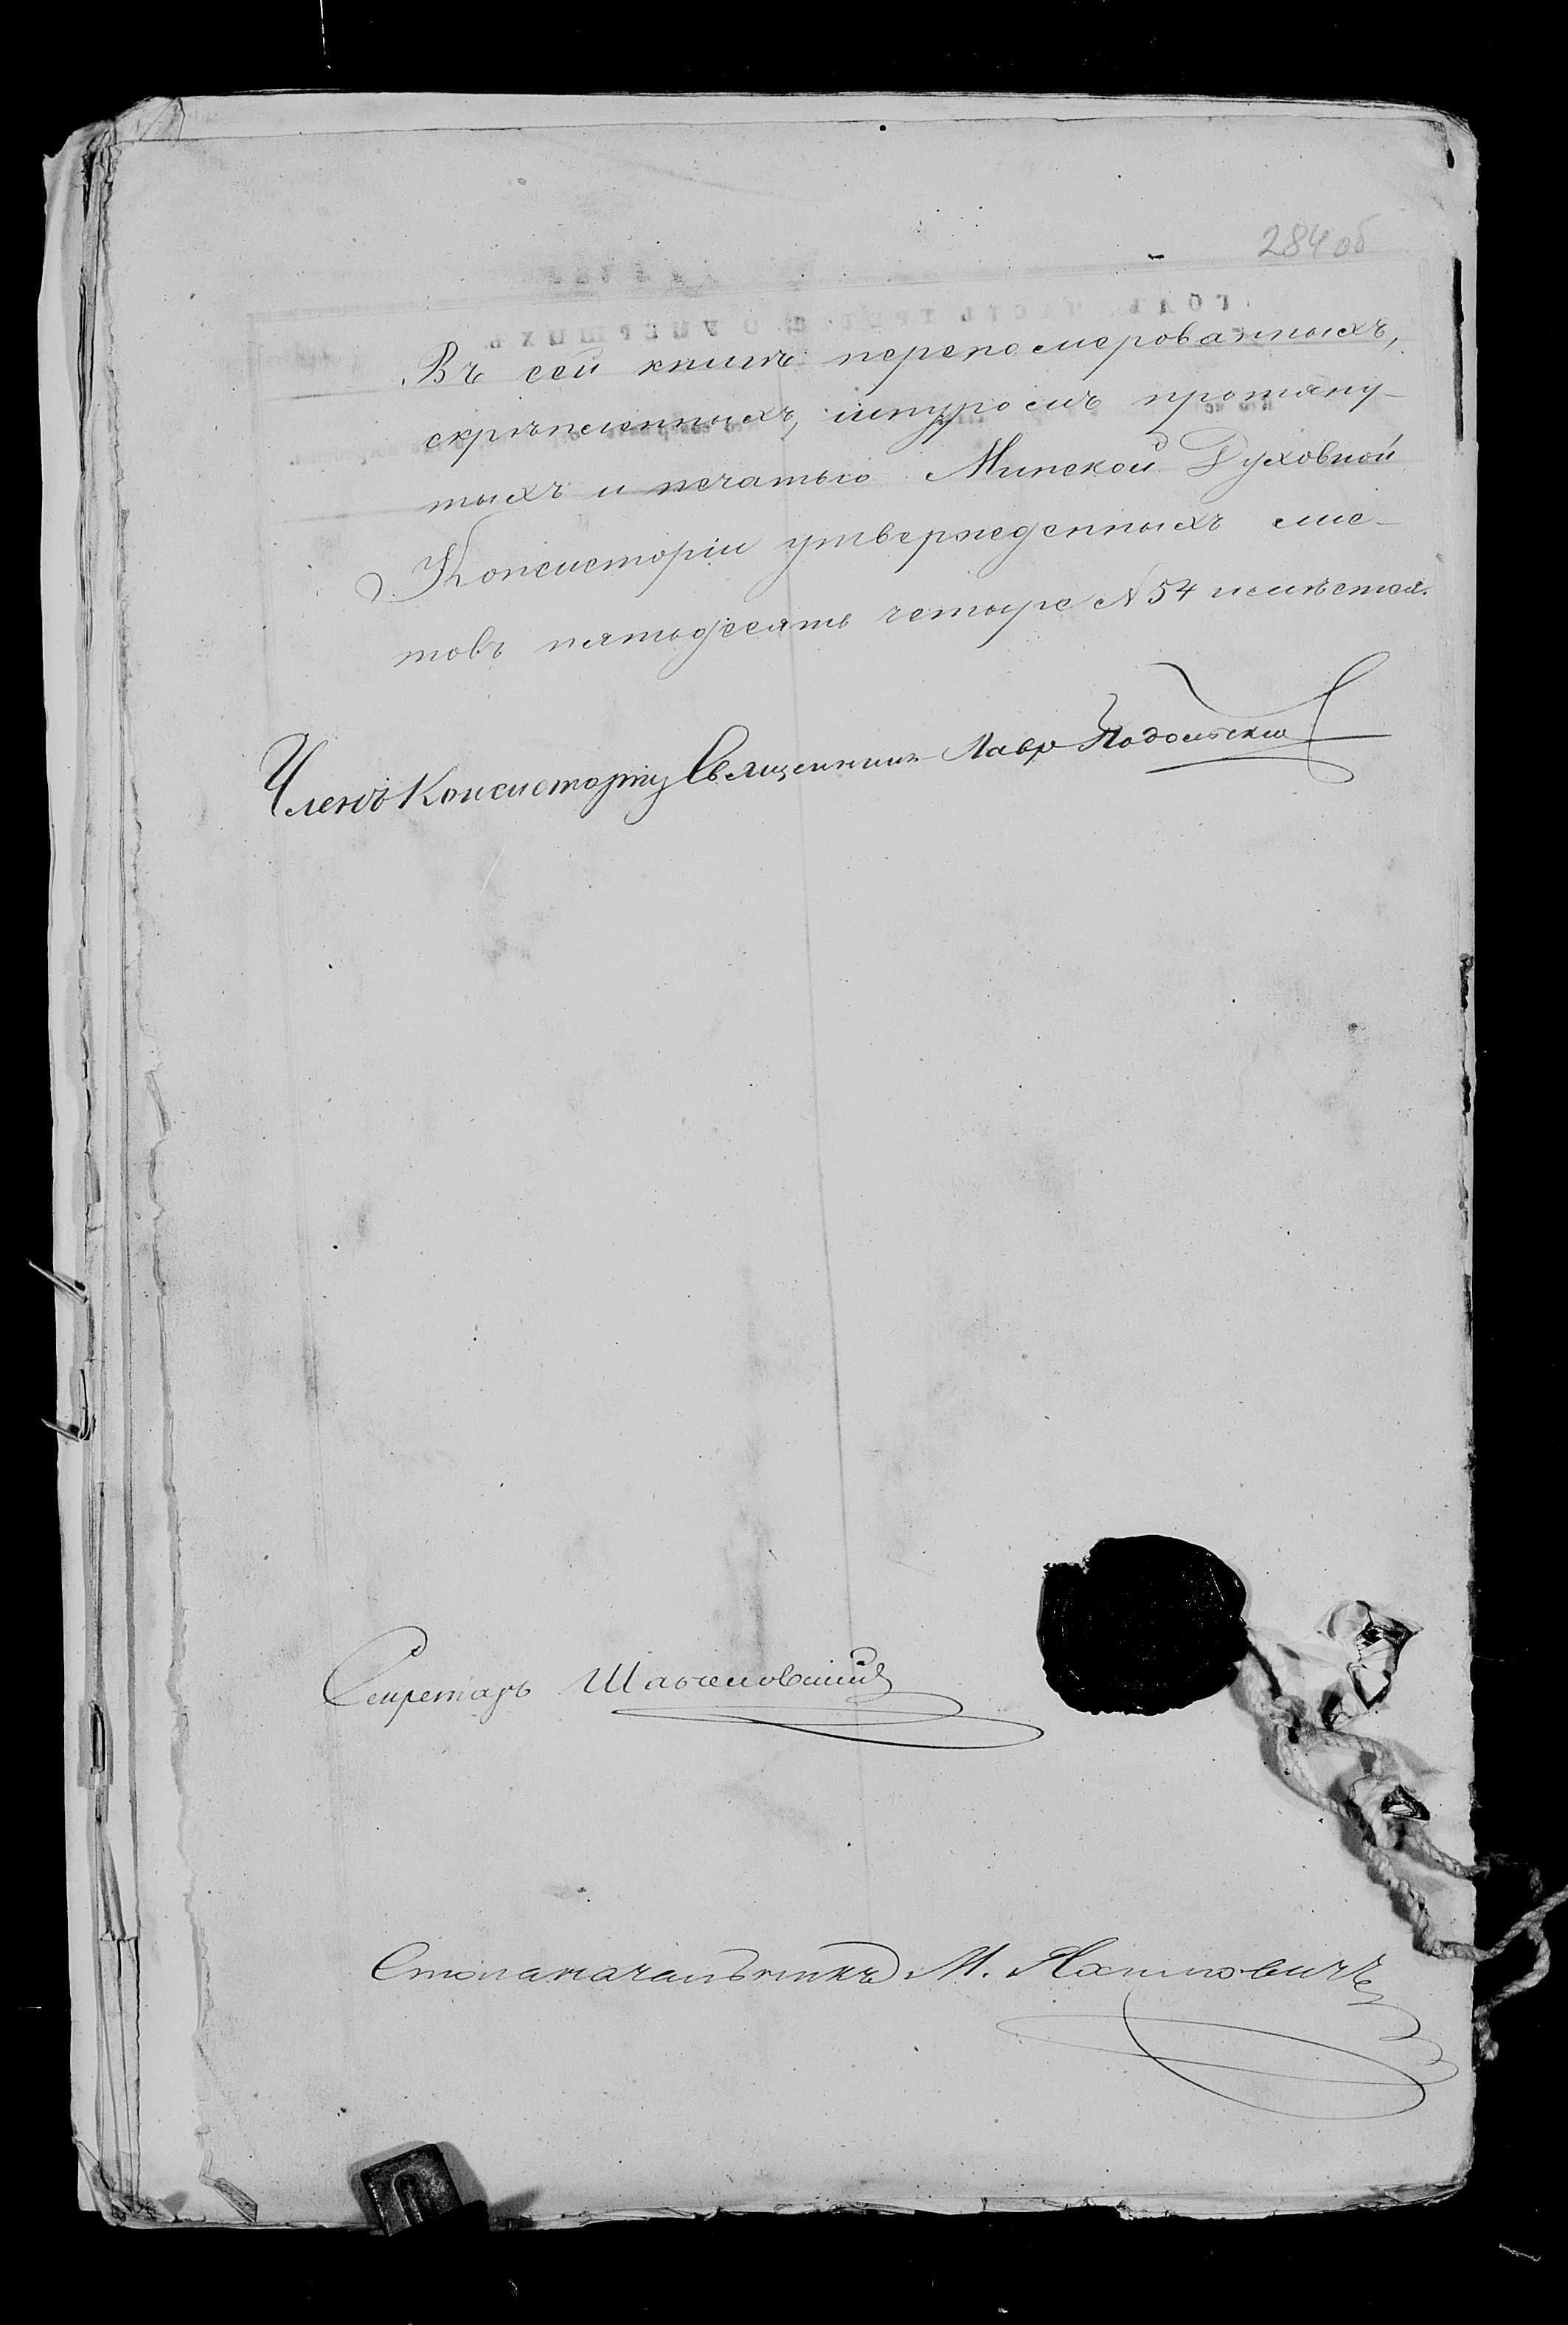 284 об
Въ сей книгѣ перепомерованныхъ,
скрѣпленныхъ, шнуромъ протяну-
тыхъ и печатью Минской Духовной
Консисторіи утвержденныхъ лис-
товъ пятьдесятъ четыре № 54
Членъ Консисторіи Священникъ Лавръ Подольскій
Секретарь
Столоначальникъ М.